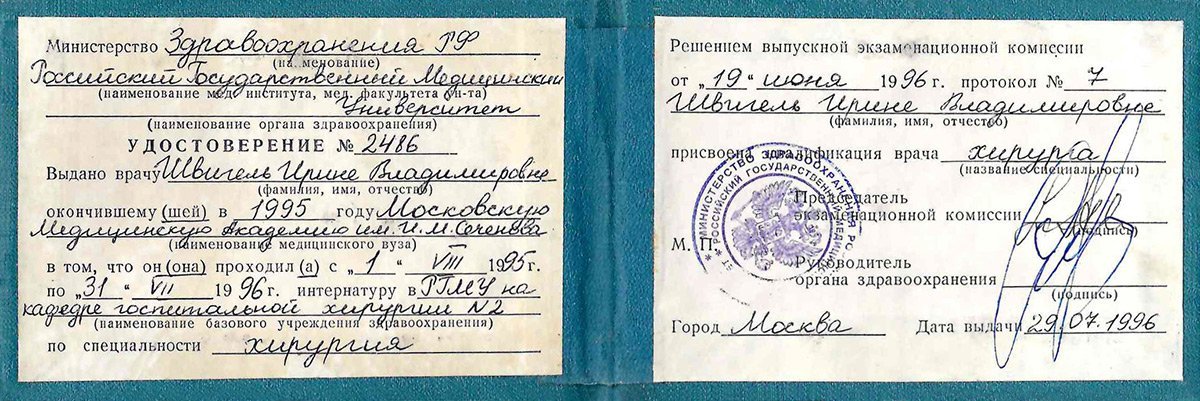 Министерство Здравоохранения РФ
(на менование)
Российский Государственный Медицинский
(наименование мед. института, мед. факультета ун-та)
Университет
(наименование органа здравоохранения)
УДОСТОВЕРЕНИЕ № 2486
Выдано врачу Швигель Ирине Владимировне
(фамилия, имя, отчество)
окончившему (шей) в 1995 году Московскую
Медицинскую Академию им. И. М. Сеченова
(наименование медицинского вуза)
в том, что он (она) проходил (а) с „1" VIII 1995г.
по „31" VII 1996г. интернатуру в РГМУ на
кафедре госпитальной хирургии N2
(наименование базового учреждения здравоохранения)
по специальности хирургия
Решением выпускной экзаменационной комиссии
от „19" июня 1996 г. протокол № 7
Швигель Ирине Владимировне
(фамилия, имя, отчество)
присвоена квалификация врача хирурга
(название специальности)
Председатель
экзаменационной комиссии
(подпись)
М. П.
Руководитель
органа здравоохранения
(подпись)
Город Москва Дата выдачи 29.07.1996
МИНИСТЕРСТВО ЗДРАВООХРАНЕНИЯ
РОССИЙСКИЙ ГОСУДАРСТВЕННЫЙ